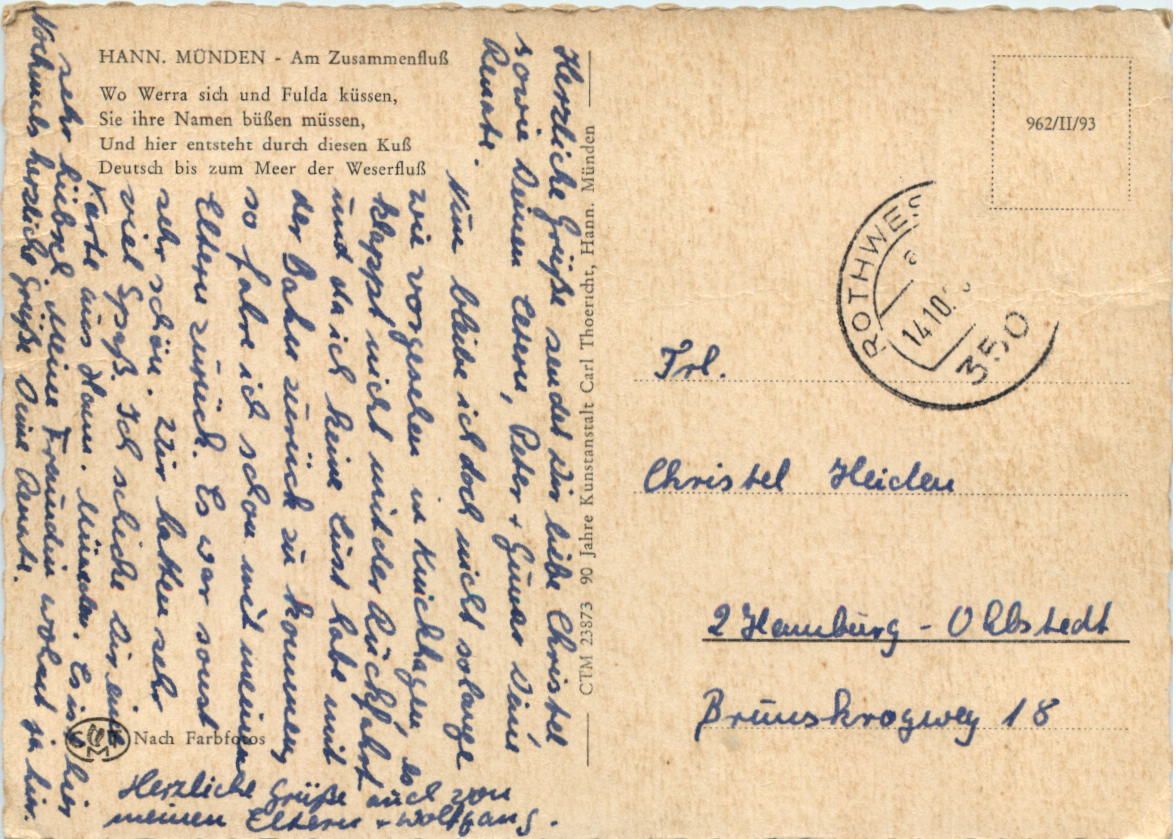 HANN. MÜNDEN - Am Zusammenfluß
Wo Werra sich und Fulda küssen,
Sie ihre Namen büßen müssen,
Und hier entsteht durch diesen Kuß
Deutsch bis zum Meer der Weserfluß
Herzliche Grüße sendet Dir liebe Christel
sowie Deinen Eltern, Peter + Gunar Deine
Renate.
Nun bleibe ich doch nicht solange
wie vorgesehen in Knickhagen, es
klappt nicht mit der Rückfahrt
und da ich keine Lust habe mit
der Bahn zurück zu kommen,
so fahre ich schon mit meinen
Eltern zurück. Es war sonst
sehr schön. Wir hatten sehr
viel Spaß. Ich schicke Dir eine
Karte aus Hann. Münden. Es ist hier
sehr hübsch. Meine Freundin wohnt ja hier.
Nochmals herzliche Grüße Deine Renate.
Herzliche Grüße auch von
meinen Eltern + Wolfgang.
Nach Farbfotos
CTM 23873 90 Jahre Kunstanstalt Carl Thoericht, Hann. Münden
962/II/93
ROTHWES
a
14.10.
350
Frl.
Christel Heiden
2 Hamburg - Ohlstedt
Brunskrogweg 18